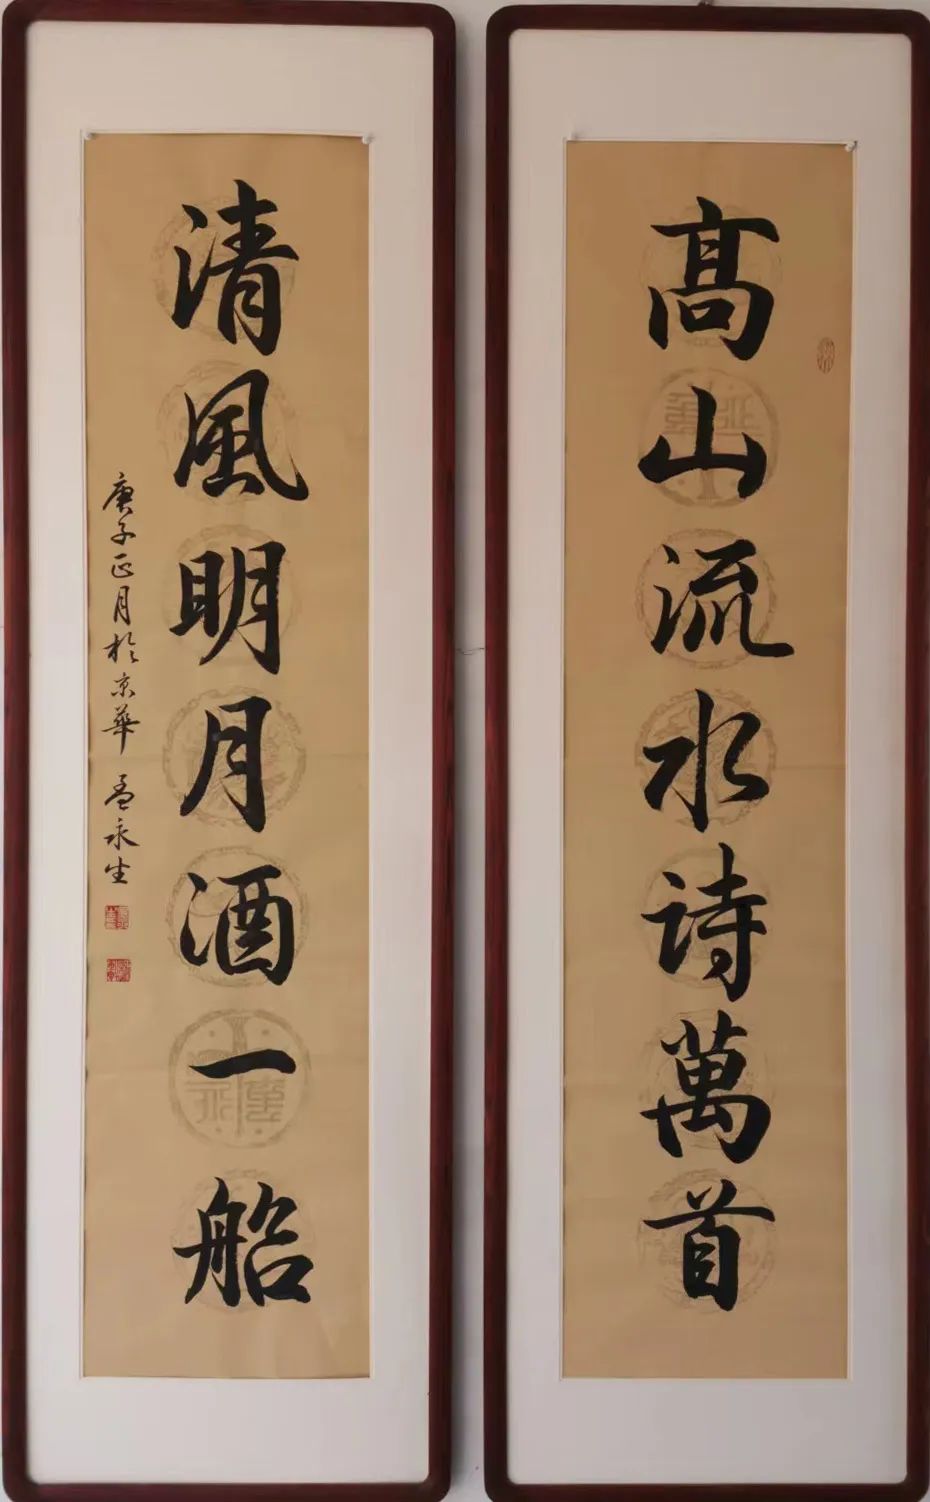 髙山流水詩萬首
清風明月酒一船
庚子正月於京華 孟永生